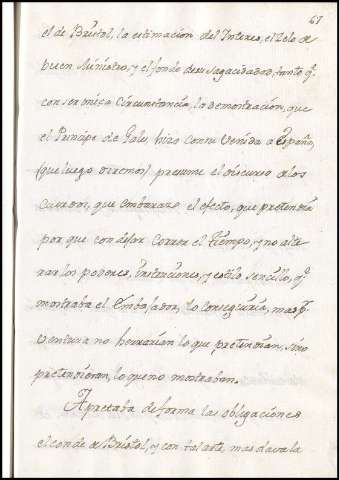 61
el de Bristol, la estimacion del Interes, el Zelo de
buen Ministro, y el fondo de su sagacidad, tanto q.
con ser unica Circunstancia, la demostracion, que
el Principe de Gales, hizo con su Venida a España,
(que luego diremos) presume el discurso de los
Curiosos, que embarazò el efecto, que pretendia
por que con dejar Correr el tiempo, y no alte-
rar los poderes, instrucciones, y estilo sencillo, q.
mostraba el Embajador, lo conseguiria, mas p.
Ventura no herrarian lo que pretendian, sino
pretendieran, lo que no mostraban.
Apretaba de forma las obligaciones
el conde de Bristol, y con tal arte, mas dava la